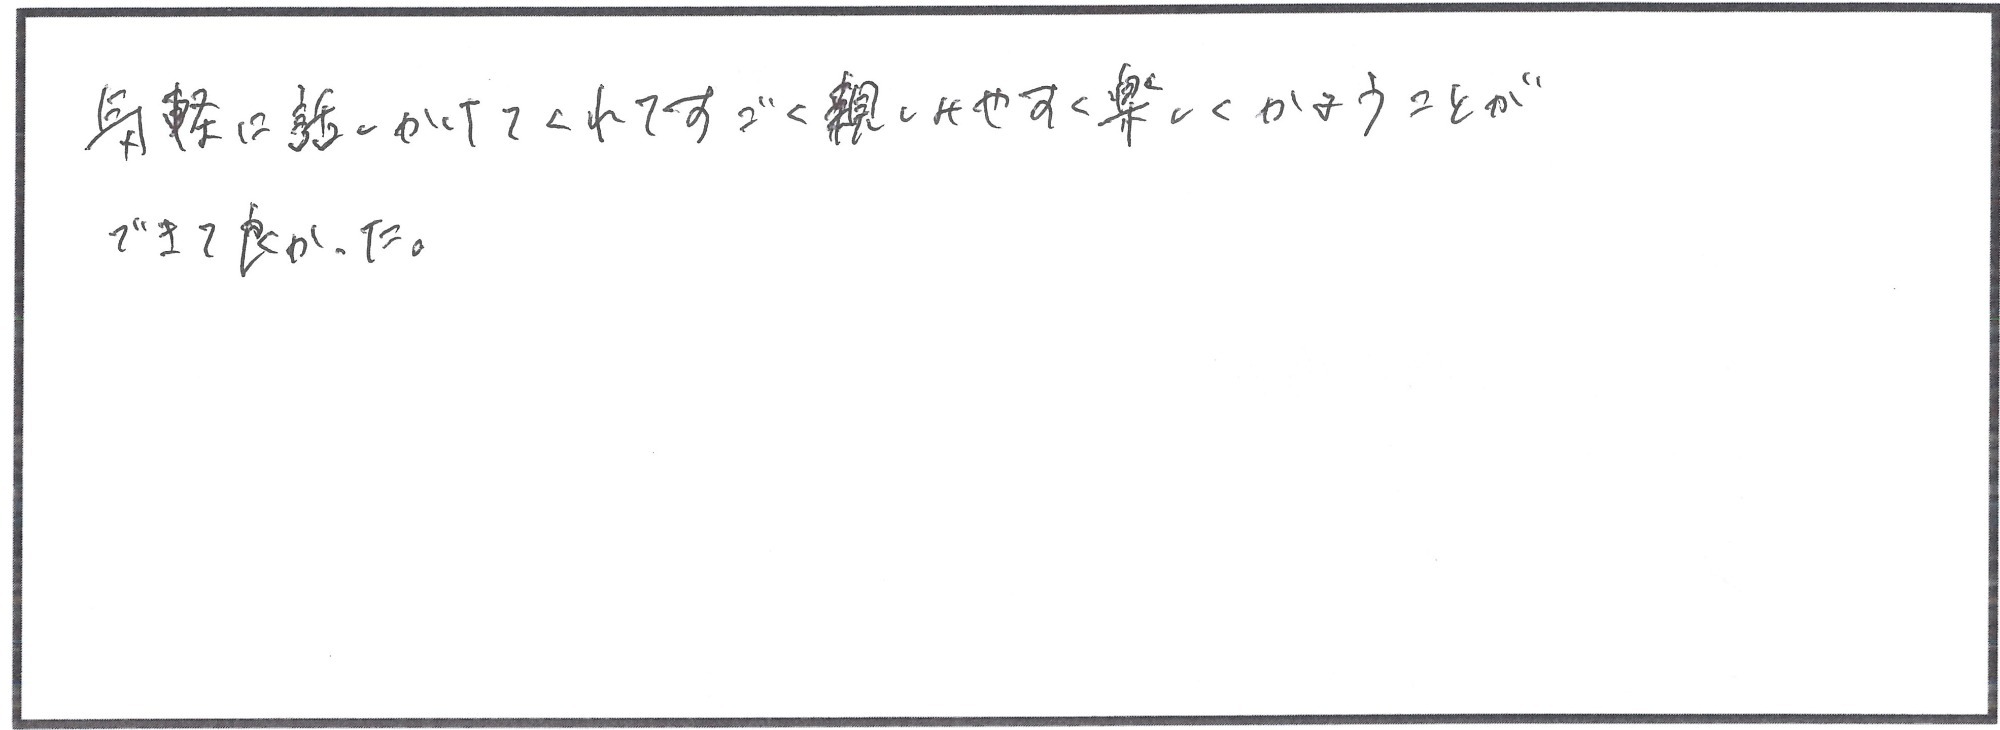 気軽に話しかけてくれてすごく親しみやすく楽しくかようことが
できて良かった。